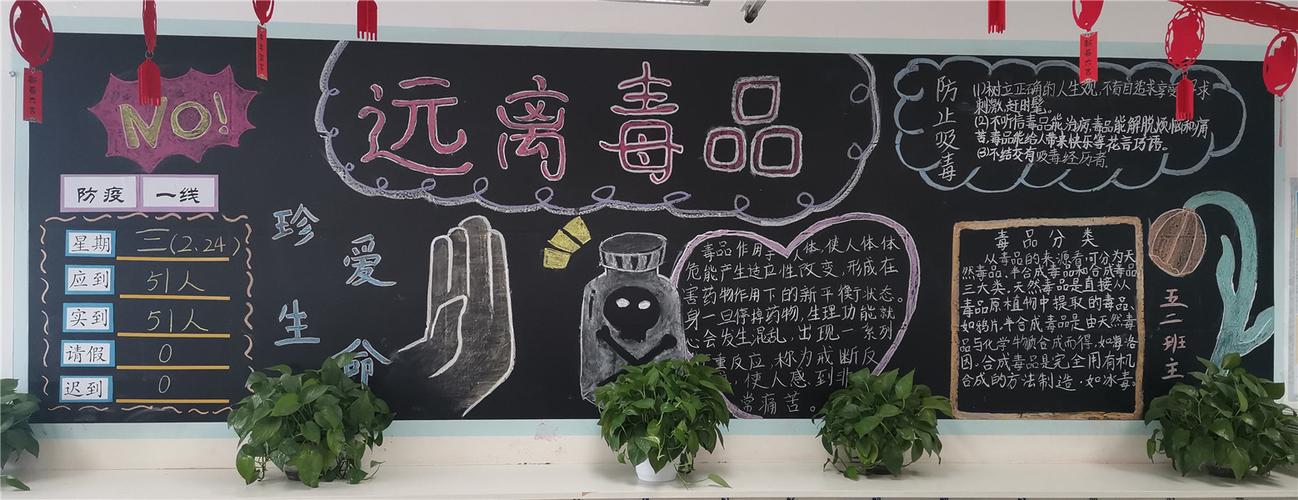 NO!
远离毒品
防疫 一线
星期 三(2.24)
应到 51人
实到 51人
请假 0
迟到 0
珍爱生命
毒品作用于人体,使人体体
能产生适应性改变,形成在
药物作用下的新平衡状态。
一旦停掉药物,生理功能就
会发生混乱,出现一系列
重反应,称为戒断反
使人感到非
常痛苦。
防止吸毒
(1)树立正确的人生观,不盲目追求享受,寻求
刺激,赶时髦。
(2)不听信毒品能治病,毒品能解脱烦恼和痛
苦,毒品能给人带来快乐等花言巧语。
(3)不结交有吸毒经历者
毒品分类
从毒品的来源看,可分为天
然毒品,半合成毒品和合成毒品
三大类。天然毒品是直接从
毒品原植物中提取的毒品,
如鸦片,半合成毒品是由天然毒
品与化学物质合成而得,如海洛
因。合成毒品是完全用有机
合成的方法制造,如冰毒。
五二班主